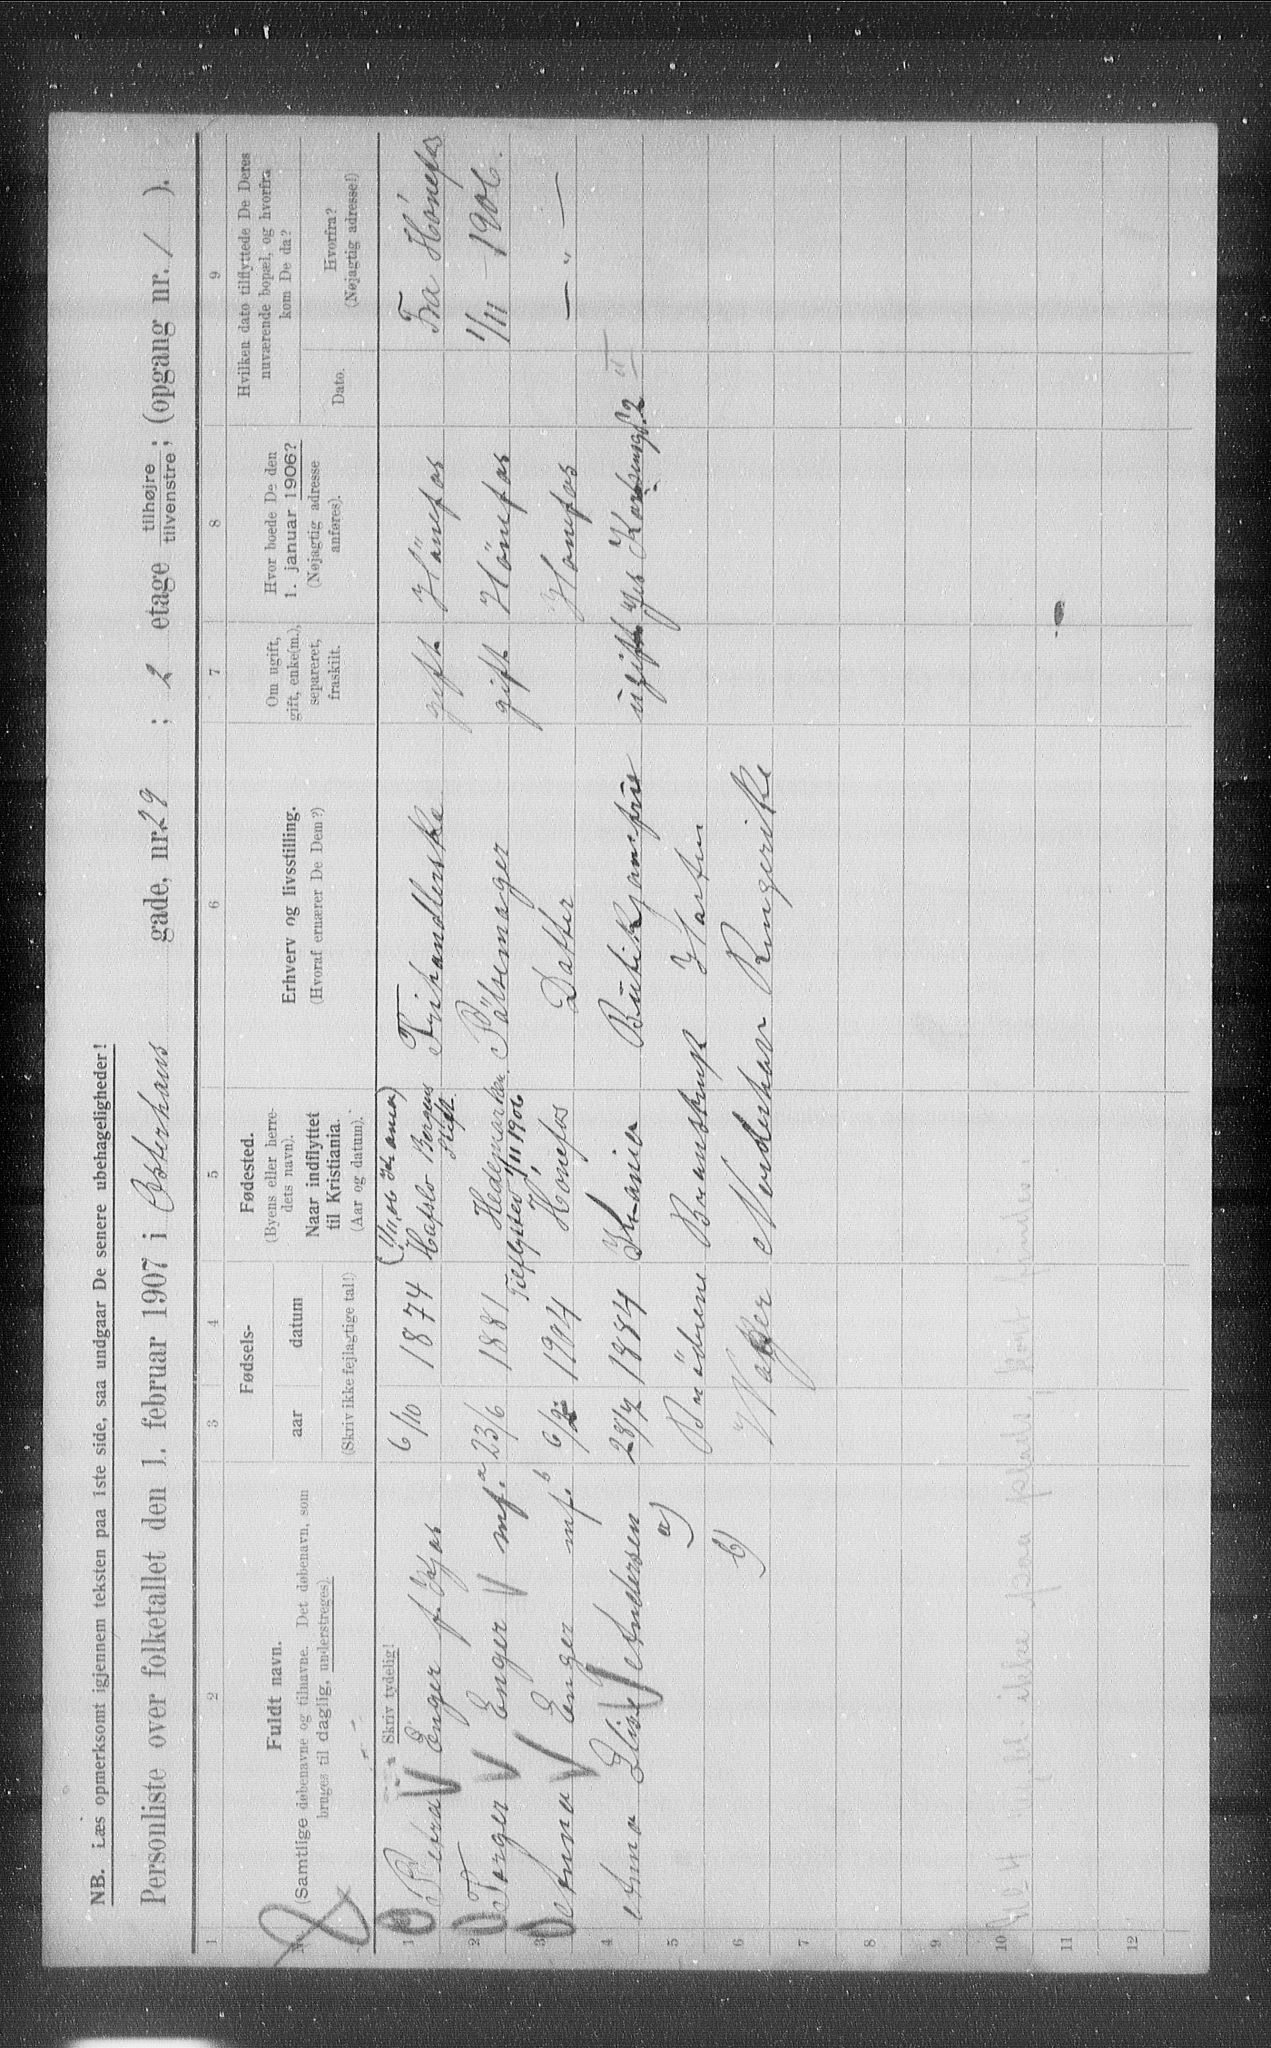 NB. Læs opmerksomt igjennem teksten paa 1ste side, saa undgaar De senere ubehageligheder!
Personliste over folketallet den 1. februar 1907 i Osterhaus gade, nr. 29 ; 2 etage tilhøjre tilvenstre ; (opgang nr. 1 ).
1 2 3 4 5 6 7 8 9
Fuldt navn.
(Samtlige døbenavne og tilnavne. Det døbenavn, som bruges til daglig, understreges).
Skriv tydelig!
Fødsels-
aar datum
(Skriv ikke fejlagtige tal!)
Fødested.
(Byens eller herredets navn).
Naar indflyttet til Kristiania.
(Aar og datum).
Erhverv og livsstilling.
(Hvoraf ernærer De Dem?)
Om ugift, gift, enke(m.), separeret, fraskilt.
Hvor boede De den 1. januar 1906?
(Nøjagtig adresse anføres).
Hvilken dato tilflyttede De Deres nuværende bopæl, og hvorfra kom De da?
Dato. Hvorfra?
(Nøjagtig adresse!)
1 Petra Enger f. 6/10 1874 Hafslo Bergens Stift Frihandlerske gift Hönefos Fra Hönefos
2 Torger Enger mf. a 23/6 1881 Hedemarken Pölsemager gift Hönefos 1/11 1906.
Tilflyttet 1/11 1906
3 Anna Enger mf. b 1904 Hönefos Datter Honefos — " —
4 Anna Elise Andersen 28/7 1884 Kr.ania Butikjomfru ugift
5 a) Brödrene
6 b) Norderhov Ringerike
7
8
9
10
11
12